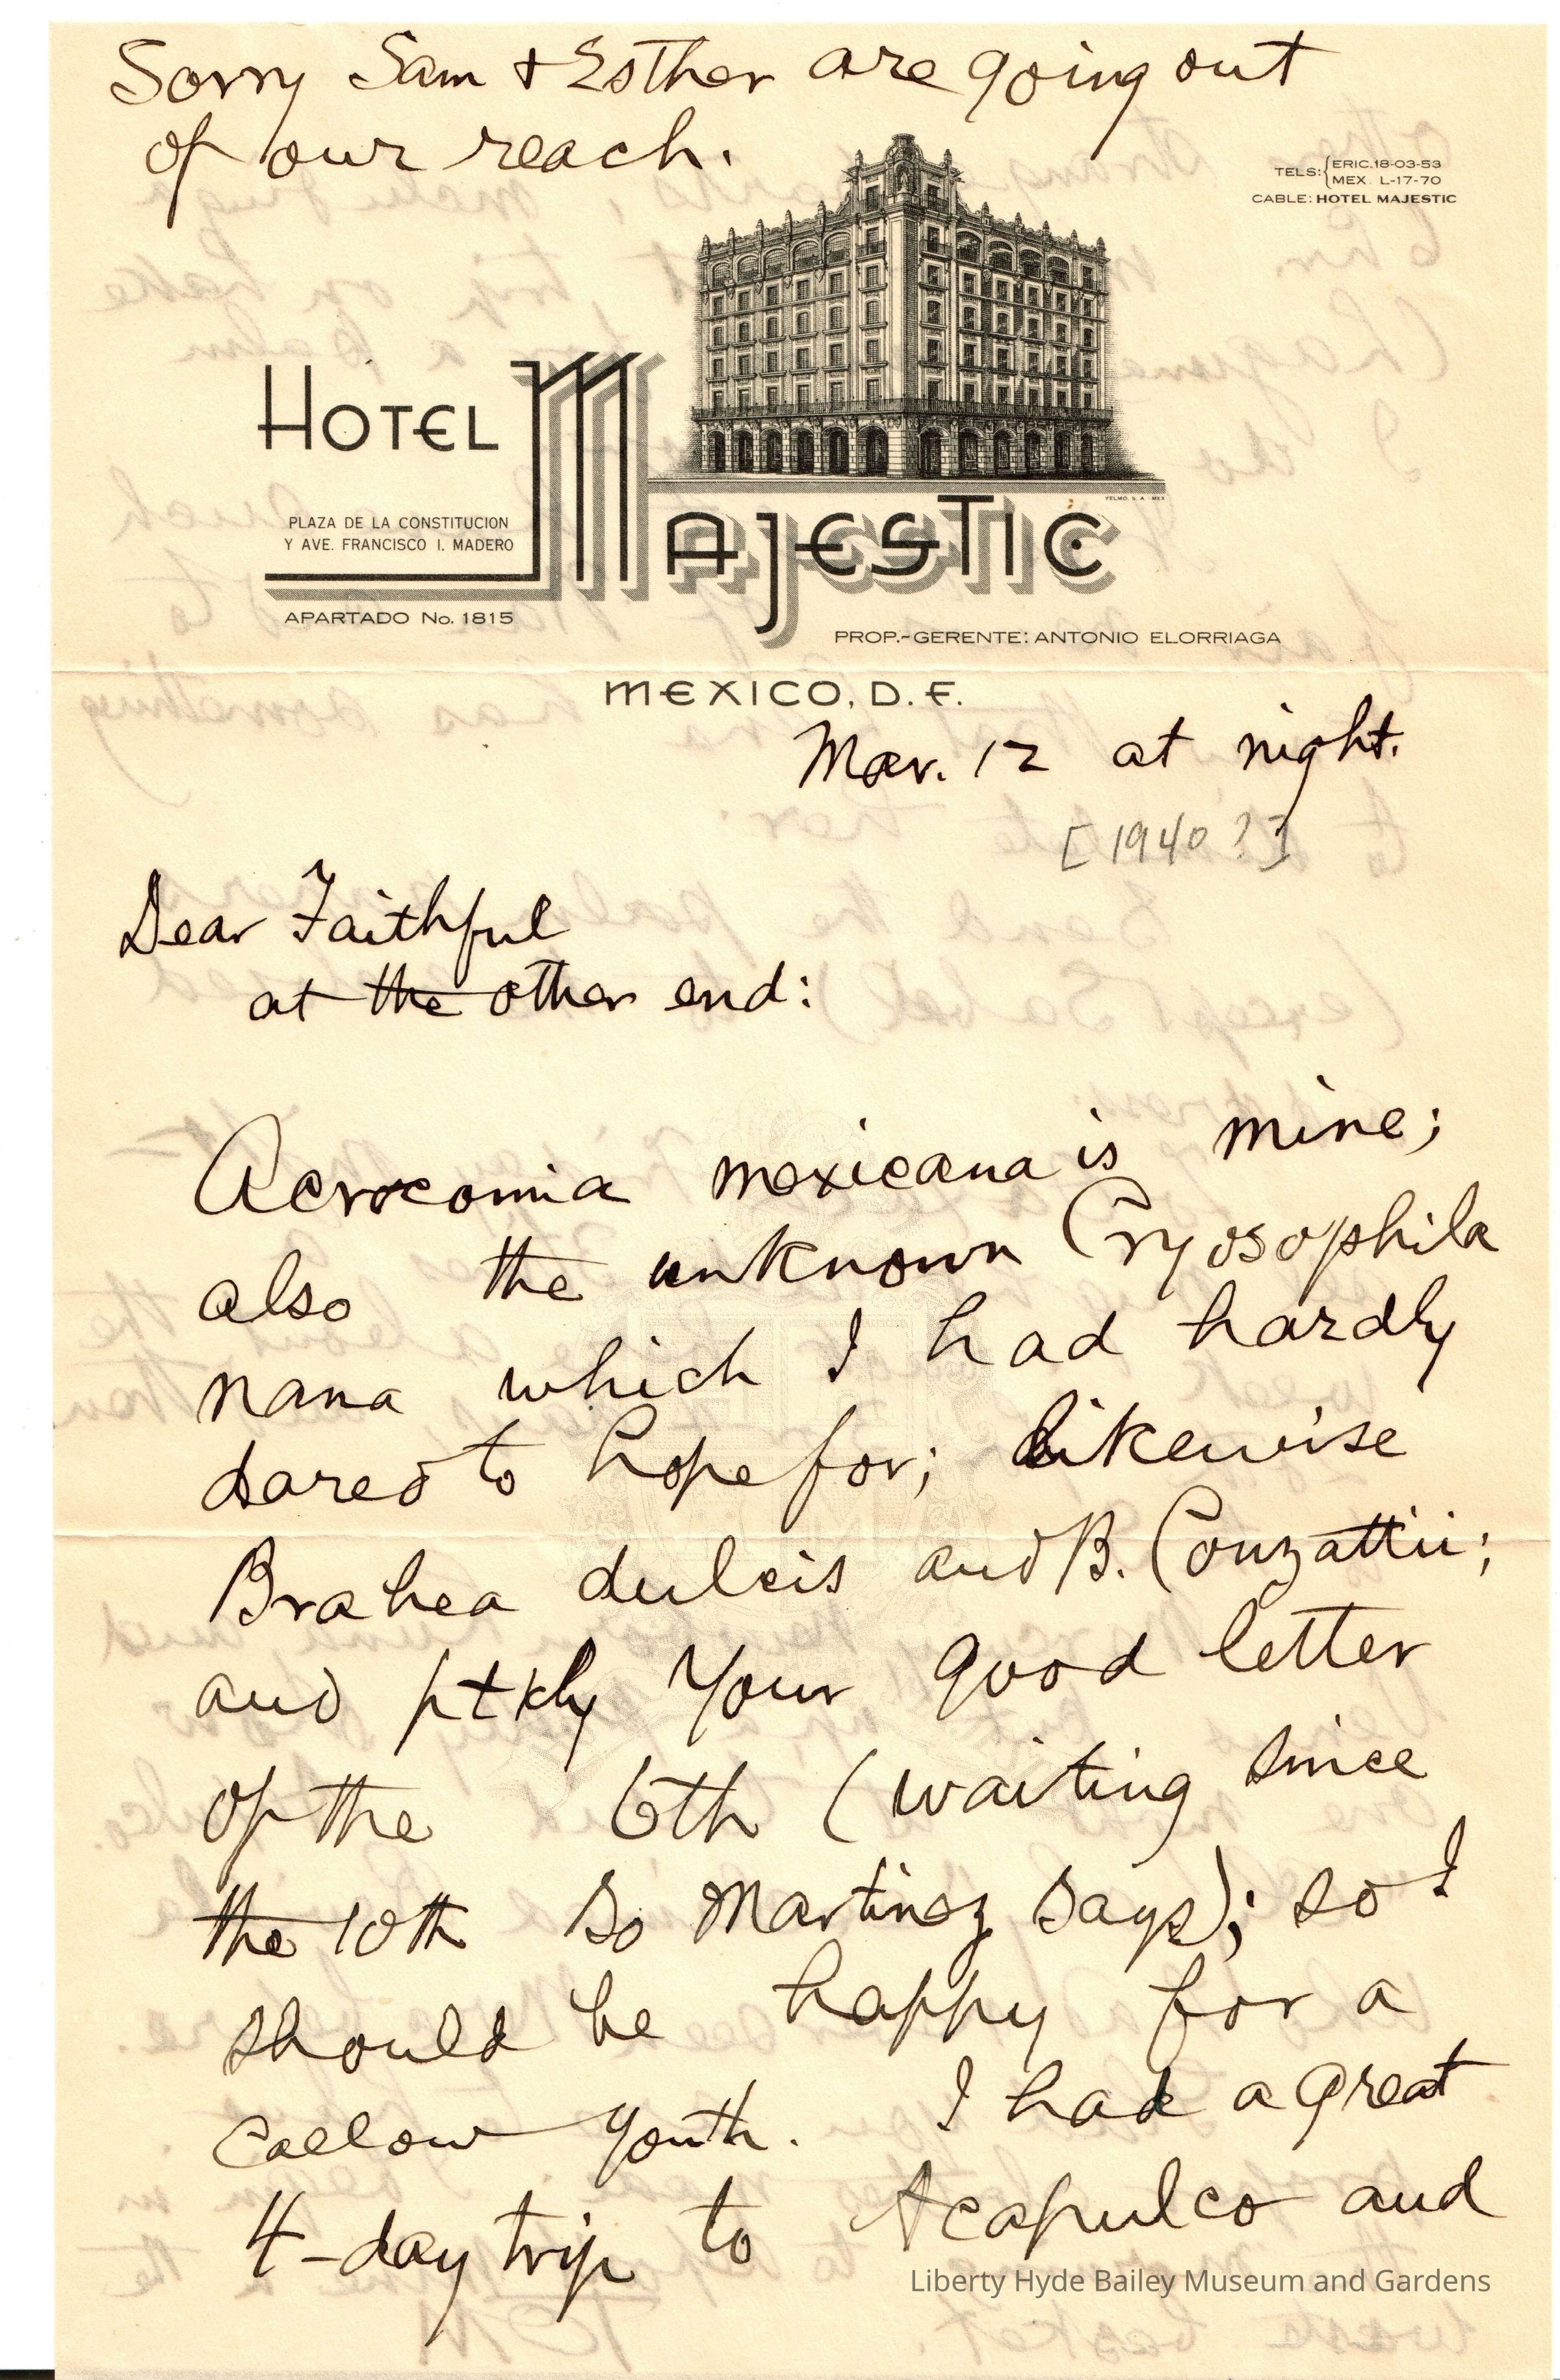 Sorry Sam + Esther are going out
of our reach.
TELS: ERIC. 18-03-53
MEX. L-17-70
CABLE: HOTEL MAJESTIC
HOTEL MAJESTIC
PLAZA DE LA CONSTITUCION
Y AVE. FRANCISCO I. MADERO
APARTADO No. 1815
PROP.-GERENTE: ANTONIO ELORRIAGA
MEXICO, D. F.
Mar. 12 at night.
[1940?]
Dear Faithful
at the other end:
Acrocomia mexicana is mine;
also the unknown Cryosophila
nana which I had hardly
dared to hope for; likewise
Brahea dulcis and B. Conzattii;
and ptkly your good letter
of the 6th (waiting since
the 10th so Martinez says); so I
should be happy for a
callow youth. I had a great
4-day trip to Acapulco and
Liberty Hyde Bailey Museum and Gardens